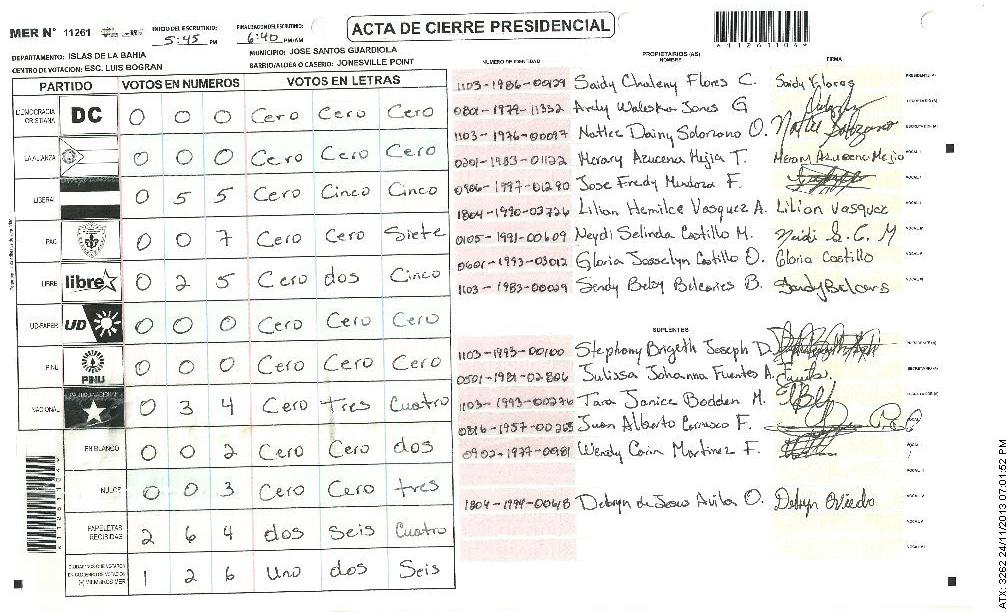 MER N° 11261
INICIO DEL ESCRUTINIO: 5:45 PM
FINALIZACION DEL ESCRUTINIO: 6:40 PM/AM
ACTA DE CIERRE PRESIDENCIAL
DEPARTAMENTO: ISLAS DE LA BAHIA
MUNICIPIO: JOSE SANTOS GUARDIOLA
CENTRO DE VOTACION: ESC. LUIS BOGRAN
BARRIO/ALDEA O CASERIO: JONESVILLE POINT
PARTIDO VOTOS EN NUMEROS VOTOS EN LETRAS
DEMOCRACIA CRISTIANA DC 0 0 0 Cero Cero Cero
LA ALIANZA 0 0 0 Cero Cero Cero
LIBERAL 0 5 5 Cero Cinco Cinco
PAC 0 0 7 Cero Cero Siete
LIBRE libre 0 2 5 Cero dos Cinco
UD-FAPER UD 0 0 0 Cero Cero Cero
PINU PINU 0 0 0 Cero Cero Cero
NACIONAL 0 3 4 Cero Tres Cuatro
EN BLANCO 0 0 2 Cero Cero dos
NULOS 0 0 3 Cero Cero tres
PAPELETAS RECIBIDAS 2 6 4 dos Seis Cuatro
1 2 6 Uno dos Seis
NUMERO DE IDENTIDAD PROPIETARIOS (AS) NOMBRE FIRMA
1103-1986-00129 Saidy Chaleny Flores C. Saidy Flores
0801-1979-11332 Ardy Waleska Jones G
1103-1976-00097 Natlee Dainy Solorzano O. Natlee Solorzano
0201-1983-01122 Merary Azucena Mejia T. Merary Azucena Mejia
0906-1997-01290 Jose Fredy Mendoza F.
1804-1990-03726 Lilian Hemilce Vasquez A. Lilian Vasquez
0105-1991-00609 Neydi Selinda Castillo M. Neidi S. C. M
0601-1993-03012 Gloria Josselyn Castillo O. Gloria Castillo
1103-1983-00029 Sendy Betsy Belcaries B.
SUPLENTES
1103-1993-00100 Stephony Brigeth Joseph D.
0501-1981-02806 Julissa Johanna Fuentes A.
1103-1993-00276 Tara Janice Bodden M.
0816-1957-00265 Juan Alberto Carrasco F.
0902-1977-00981 Wendy Carin Martinez F.
1804-1994-00618 Debryn de Jesus Avila O. Debryn Oviedo
ATX: 3262 24/11/2013 07:01:52 PM